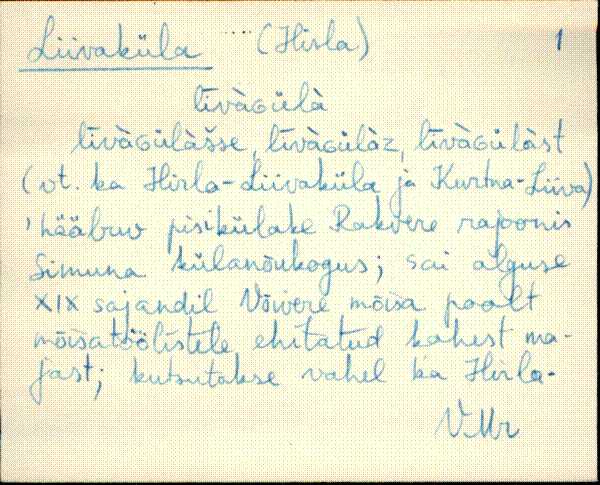 Liivaküla .... (Hirla) 1
līvàɢülà
līvàɢülàšse, līvàɢülàz, līvàɢülàst
(vt. ka Hirla-Liivaküla ja Kurtna-Liiva)
'hääbuv pisikülake Rakvere rajoonis
Simuna külanõukogus; sai alguse
XIX sajandil Võivere mõisa poolt
mõisatöölistele ehitatud kahest ma-
jast; kutsutakse vahel ka Hirla-
V. Mr